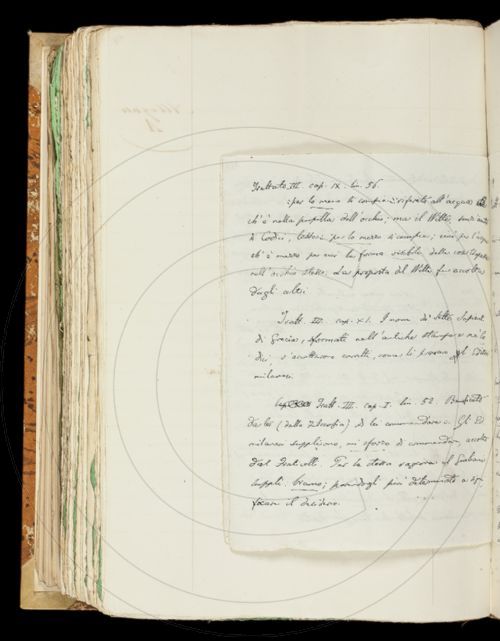 Trattato III. cap. IX. lin. 56.
:per lo mezzo si compie: riferito all'acqua
ch'è nella pupilla dell'occhio; ma il Witte,
di Codici, per lo mezzo si compie; cioè per l'acqua
ch'è mezzo per cui la forma visibile della cosa
nell'occhio stesso. La proposta del Witte fu accolta
dagli altri.
Tratt. III. cap. XI. I nomi de' sette Sapienti
di Grecia, sformati nell'antiche stampe e ne' Co
dici, s'accettano corretti, come li posero gli Edit.
milanesi.
Tratt. III. cap. I. lin. 52.
(della Filosofia) di lei commendare. Gli Ed.
milanesi suppliscono, mi sforzo di commendare,
dal Fraticelli. Per la stessa ragione il Giuliani
suppli. bramo; parendogli più determinato a si
ficare il desiderio.